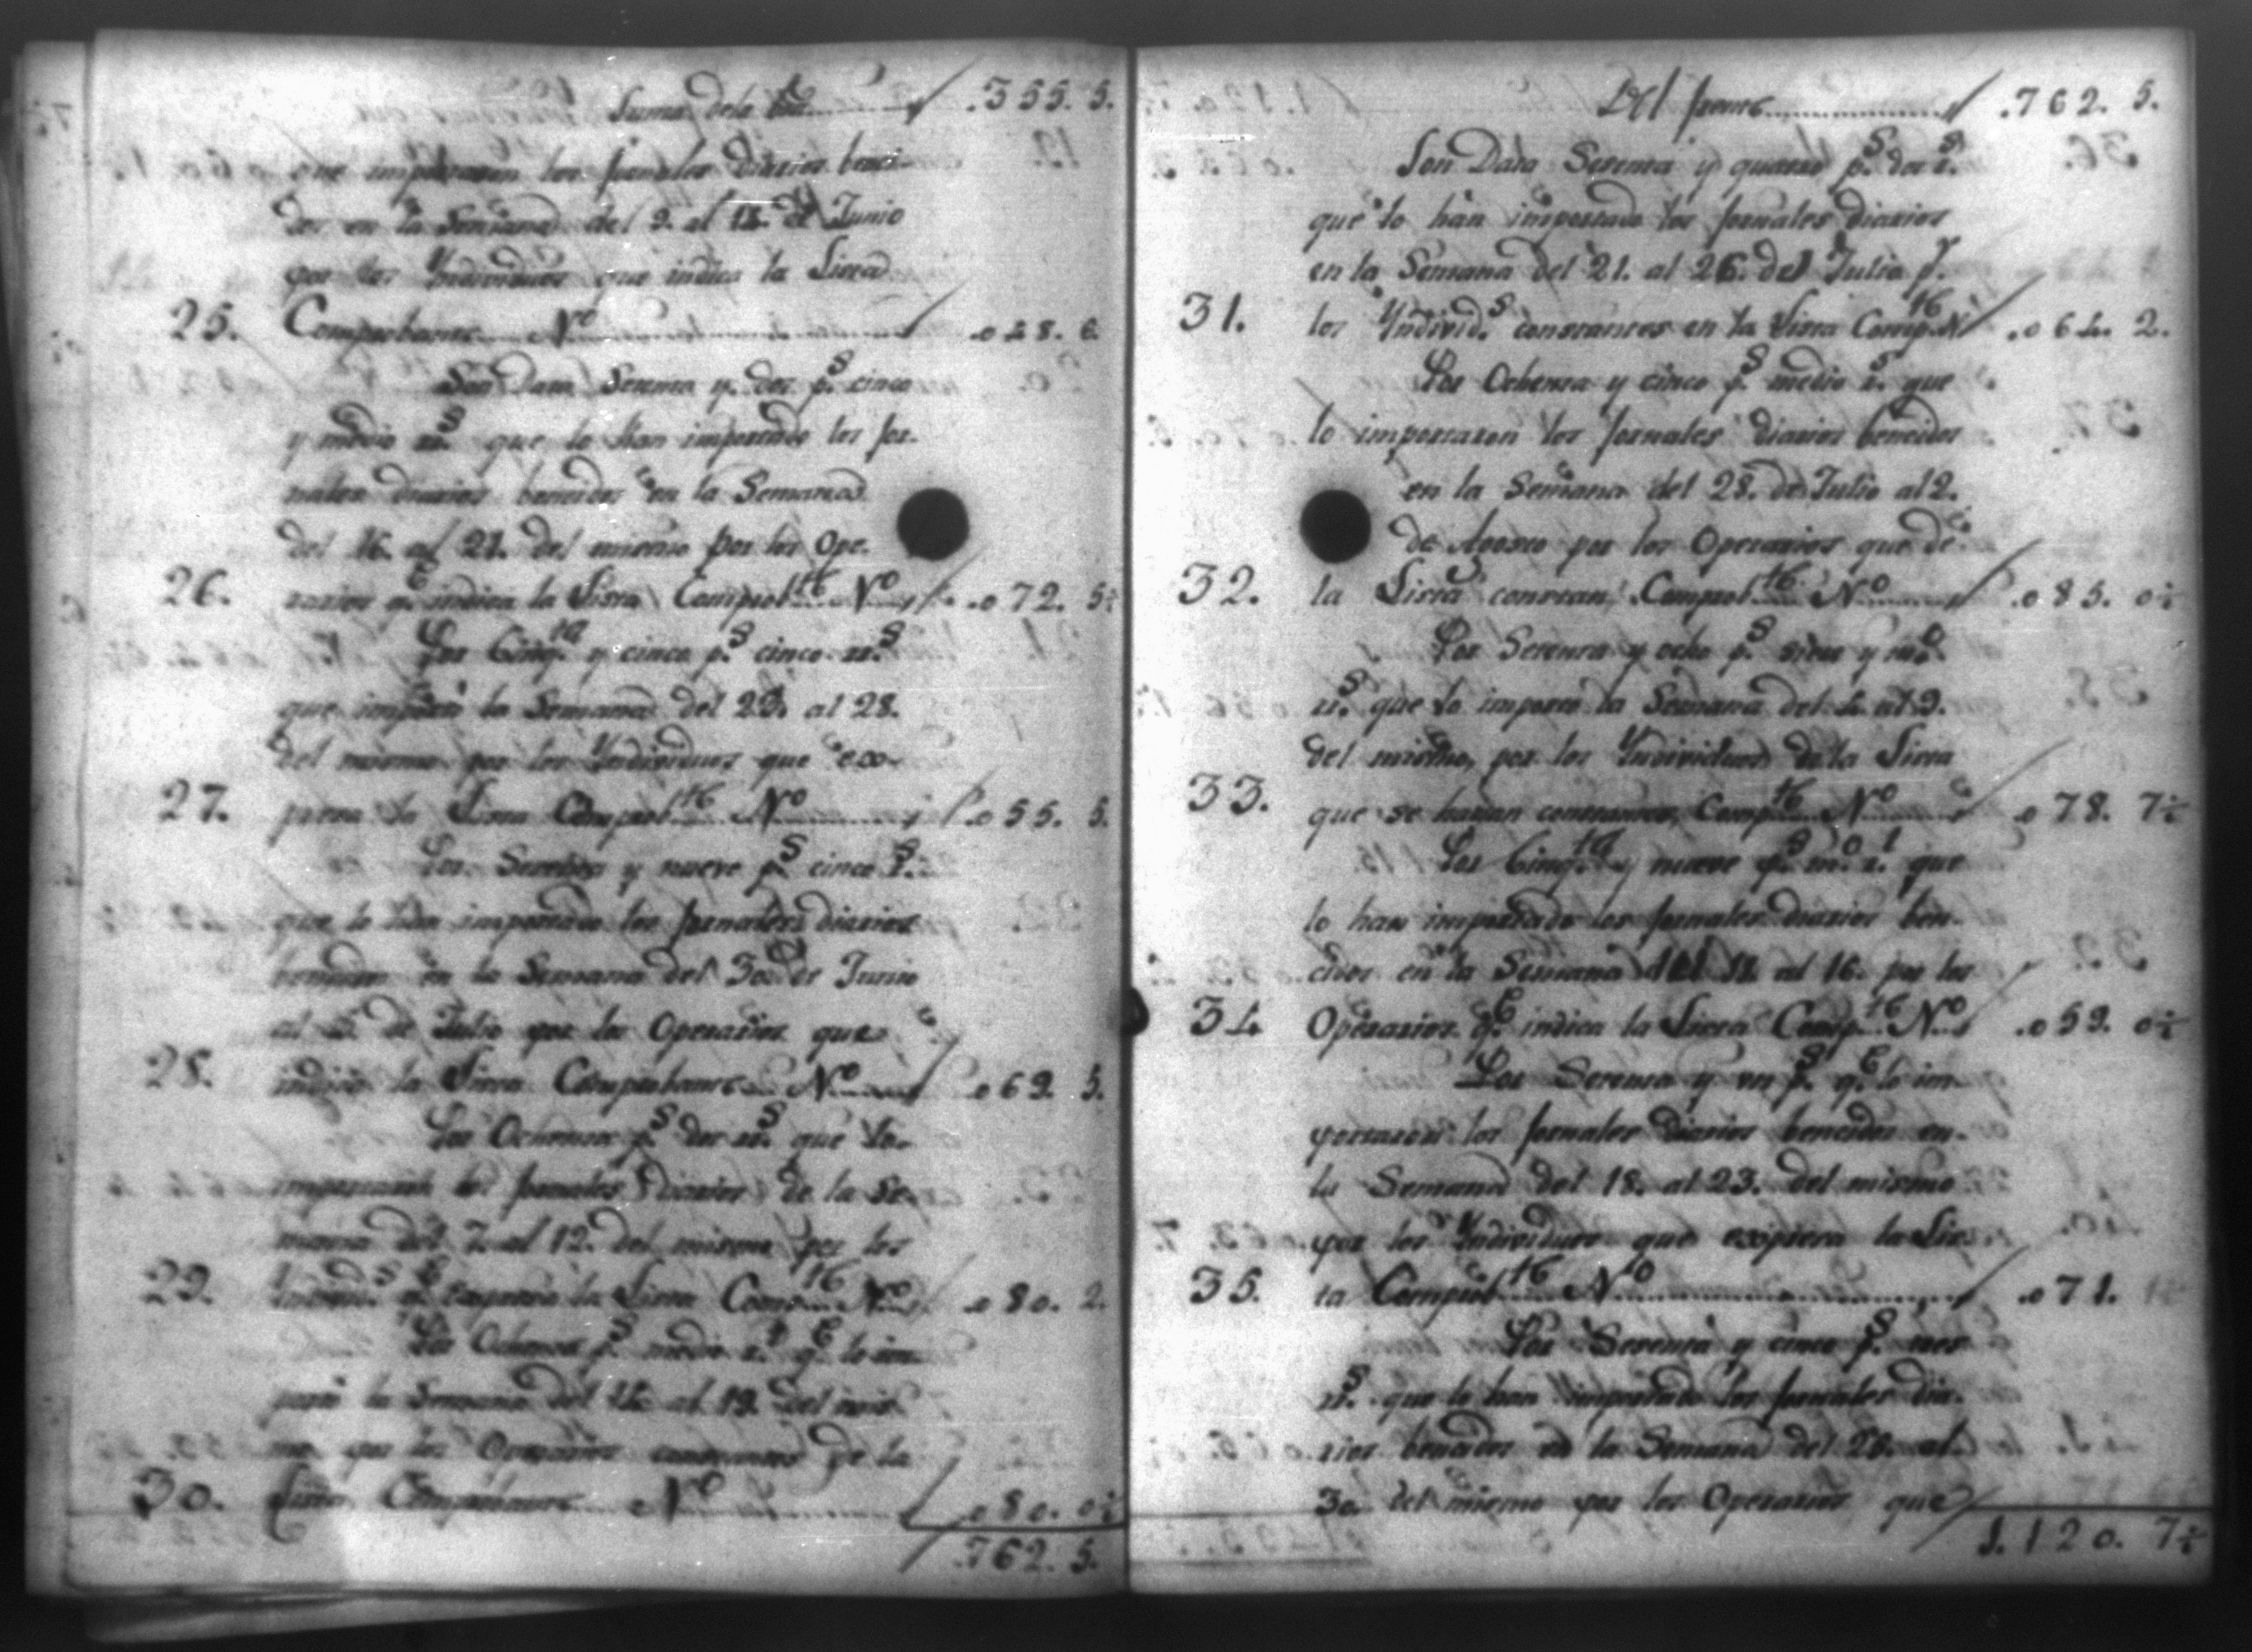 Suma de la .355. 5.
que importaron los jornales diarios benci-
dos en la Semana del 9. al 14. de Junio
por los Yndividuos que indica la Lista
25. Comprobante Nº .048. 6.
Son Data Setenta y dos p.s cinco
y medio rr.s que lo han importado los jor-
nales diarios bencidos en la Semana
del 16. al 21. del mismo por los Ope-
26. rarios q.e indica la Lista Comprob.te Nº .072. 5½
Por Cinq.ta y cinco p.s cinco rr.s
que importó la Semana del 23. al 28.
del mismo por los Yndividuos que ex-
27. presa la Lista Comprob.te Nº .055. 5.
Por Sesenta y nueve p.s cinco r.s
que lo han importado los jornales diarios
bencidos en la Semana del 30. de Junio
al 5. de Julio por los Operarios que
28. indica la Lista Comprobante Nº .069. 5.
Por Ochenta p.s dos rr.s que lo
importaron los jornales diarios de la Se-
mana del 7. al 12. del mismo por los
29. Yndivid.s q.e expresa la Lista Comp.te Nº .080. 2.
Por Ochenta p.s medio r.l q.e lo im-
portó la Semana del 14. al 19. del mis-
mo por los Operarios constantes de la
30. Lista Comprobante Nº .080. 0½
.762. 5.
Del frente .762. 5.
Son Data Sesenta y quatro p.s dos r.s
que lo han importado los jornales diarios
en la Semana del 21. al 26. del Julio p.r
31. los Yndivid.s constantes en la Lista Comp.te Nº .064. 2.
Por Ochenta y cinco p.s medio r.l que
lo importaron los jornales diarios bencidos
en la Semana del 28. de Julio al 2.
de Agosto por los Operarios que de
32. la Lista constan, Comprob.te Nº .085. 0½
Por Setenta y ocho p.s siete y m.o
rr.s que lo importó la Semana del 4. al 9.
del mismo, por los Yndividuos de la Lista
33. que se hayan constantes, Comp.te Nº .078. 7½
Por Cinq.ta y nueve p.s m.o r.l que
lo han importado los jornales diarios ben-
cidos en la Semana del 11. al 16. por los
34. Operarios q.e indica la Lista Comp.te Nº .059. 0½
Por Setenta y un p.s q.e lo im-
portaron los jornales diarios bencidos en
la Semana del 18. al 23. del mismo
por los Yndividuos que expresa la Lis-
35. ta Comprob.te Nº .071.
Por Setenta y cinco p.s tres
rr.s que lo han importado los jornales dia-
rios bencidos en la Semana del 26. al
30. del mismo por los Operarios que
1.120. 7½